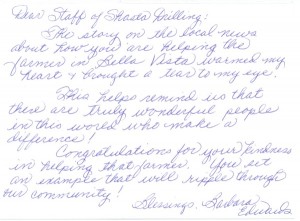 Dear Staff of Shasta Drilling:
The story on the local news
about how you are helping the
farmer in Bella Vista warmed my
heart & brought a tear to my eye.
This helps remind us that
there are truly wonderful people
in this world who make a
difference!
Congratulations for your kindness
in helping that farmer. You set
an example that will ripple through
our community!
Blessings, Barbara
Edwards